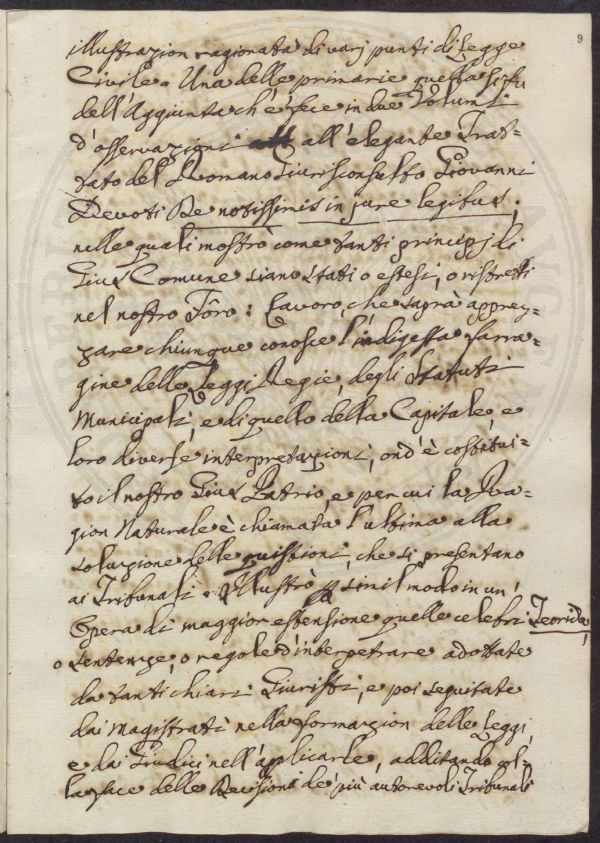 9
illustrazion ragionata di varj punti di Legge
Civile. Una delle primarie quella si fu
dell'Aggiunta ch'e' fece in due Volumi
d'osservazioni all'elegante Trat=
tato del Romano Giurisconsulto Giovanni
Devoti De notissimis in jure legibus;
nelle quali mostrò come tanti principj di
Gius Comune siano stati o estesi, o ristretti
nel nostro Fôro: Lavoro, che saprà apprez=
zare chiunque conosce l'indigesta farra=
gine delle Leggi Regie, degli Statuti
Municipali, e di quello della Capitale, e
loro diverse interpretazioni, ond'è costitui=
to il nostro Gius Patrio, e per cui la Ra=
gion Naturale è chiamata l'ultima alla
soluzione delle quistioni, che si presentano
ai Tribunali. Illustrò simil modo in un'
Opera di maggior estensione quelle celebri Teorie,
o sentenze, o regole d'interpetrare adottate
da tanti chiari Giuristi, e poi seguitate
dai Magistrati nella formazion delle Leggi,
e da Giudici nell'applicarle, additando col=
la face delle Decisioni de' più autorevoli Tribunali